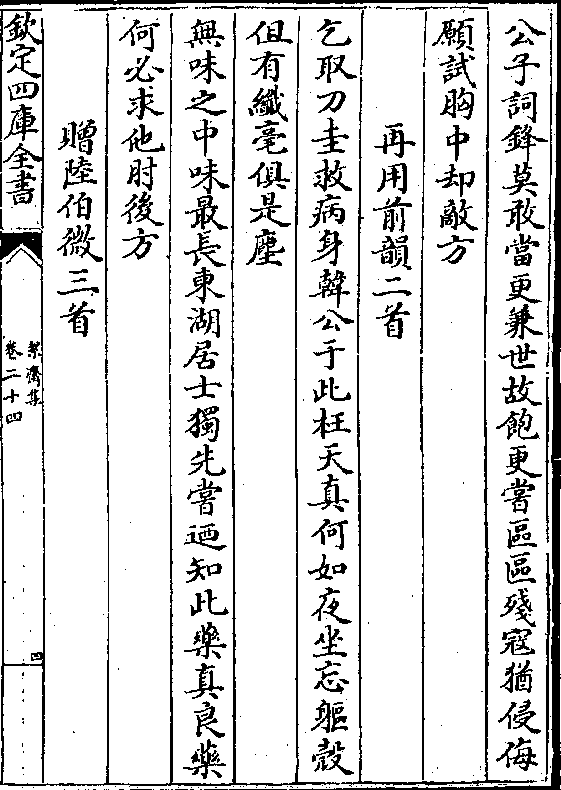 公子詞鋒莫敢當更兼世故飽更嘗區區殘寇猶侵侮
願試胸中却敵方
再用前韻二首
乞取刀圭救病身韓公于此枉天真何如夜坐忘軀殼
但有纖毫俱是塵
無味之中味最長東湖居士獨先嘗迺知此藥真良藥
何必求他肘後方
贈陸伯微三首
欽定四庫全書
絜齋集
卷二十四
四